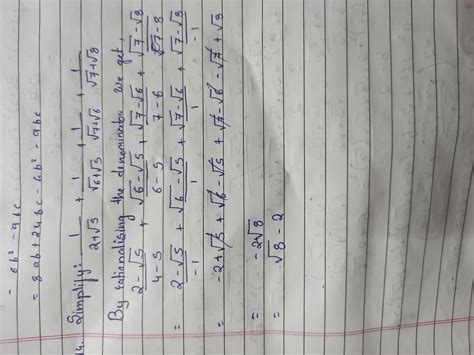 - 6b² - abc
= 8ab + 24bc - 6b² - abc
14. Simplify: 1/(2+√5) + 1/(√6+√5) + 1/(√7+√6) + 1/(√7+√8)
By rationalising the denominator we get,
(2-√5)/(4-5) + (√6-√5)/(6-5) + (√7-√6)/(7-6) + (√7-√8)/(7-8)
= (2-√5)/-1 + (√6-√5)/1 + (√7-√6)/1 + (√7-√8)/-1
= -2+√5 + √6-√5 + √7-√6 - √7 + √8
= -2√8
= √8 - 2